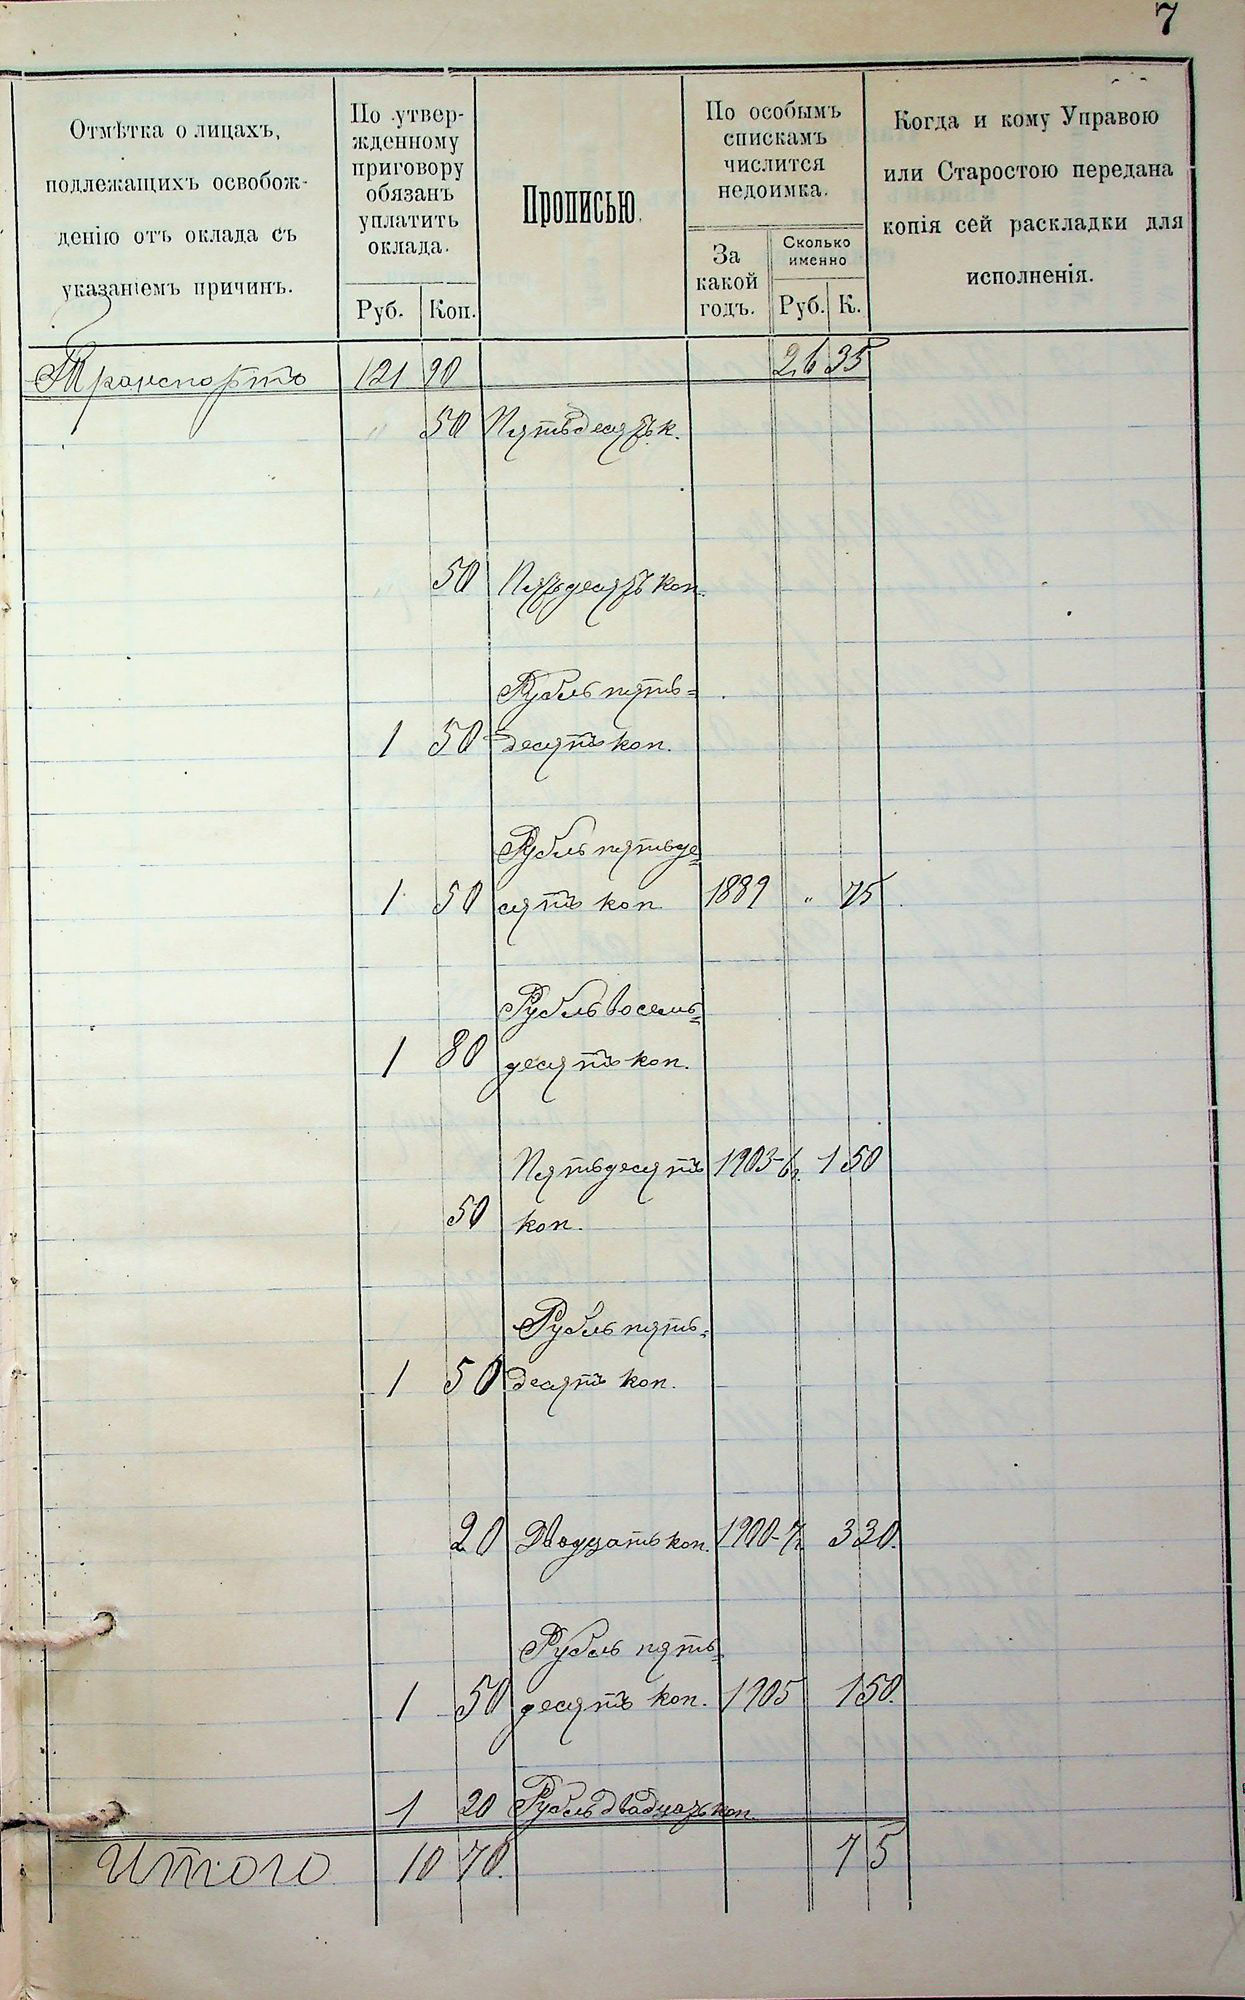 7
Отмѣтка о лицахъ,
подлежащихъ освобож-
денію отъ оклада съ
указаніемъ причинъ.
По утвер-
жденному
приговору
обязанъ
уплатить
оклада.
Руб. Коп.
Прописью.
По особымъ
спискамъ
числится
недоимка.
За
какой
годъ.
Сколько
именно
Руб. К.
Когда и кому Управою
или Старостою передана
копія сей раскладки для
исполненія.
Транспортъ 121 90 26 35
" 50 Пятьдесятъ к.
" 50 Пятьдесятъ коп.
Рубль пять=
1 50 десятъ коп.
Рубль пятьде=
1 50 сятъ коп. 1889 " 75
Рубль восемь=
1 80 десятъ коп.
Пятьдесятъ 1903-6г. 1 50
50 коп.
Рубль пять=
1 50 десятъ коп.
20 Двадцать коп. 1900-7г. 3 30.
Рубль пять=
1 50 десятъ коп. 1905 1 50.
1 20 Рубль двадцать коп.
Итого 10 70. 7 5